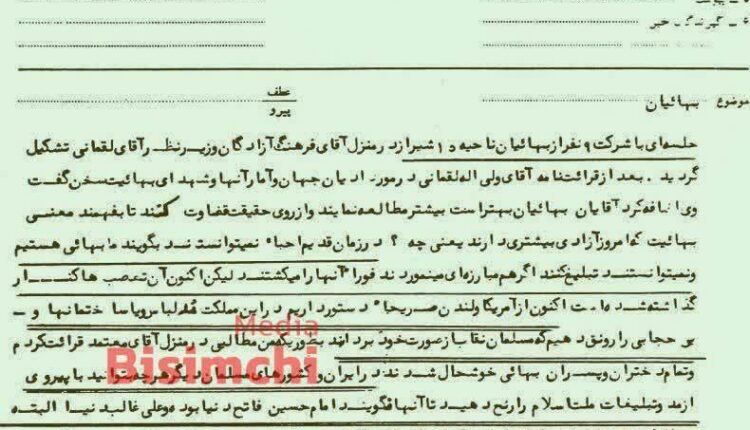 ۶ - گیرندگـ خبر
موضوع بهائیان
عطف
پیرو
جلسه‌ای با شرکت ۹ نفر از بهائیان ناحیه ۱۵ شیراز در منزل آقای فرهنگ آزادگان وزیر نظر آقای لقمانی تشکیل
گردید . بعد از قرائت نامه آقای ولی اله لقمانی در مورد ادیان جهان و آمار آنها و شهدای بهائیت سخن گفت
وی اضافه کرد آقایان بهائیان بهتر است بیشتر مطالعه نمایند و از روی حقیقت قضاوت کنند تا بفهمند معنـی
بهائیت که امروز آزادی بیشتری دارند یعنی چه ؟ در زمان قدیم احباء نمیتوانستند بگویند ما بهائی هستیم
و نمیتوانستند تبلیغ کنند اگر هم مبارزه‌ای مینمودند فوراً آنها را میکشتند لیکن اکنون آن تعصب ها کنـار
گذاشته شده است اکنون از آمریکا و لندن صریحاً دستور داریم در این مملکت مد لباس و یا ساختمانها و -
بی حجابی را رونق دهیم که مسلمان نقاب از صورت خود بردارند بطوریکه من مطالبی در منزل آقای معتمد قرائت کردم
و تمام دختران و پسران بهائی خوشحال شدند در ایران و کشورهای مسلمان دیگر هر چه بتوانید با پیروی
از مد و تبلیغات ملت اسلام را رنج دهید تا آنها نگویند امام حسین فاتح دنیا بوده و علی غالب دنیا البته
Media
Bisimchi